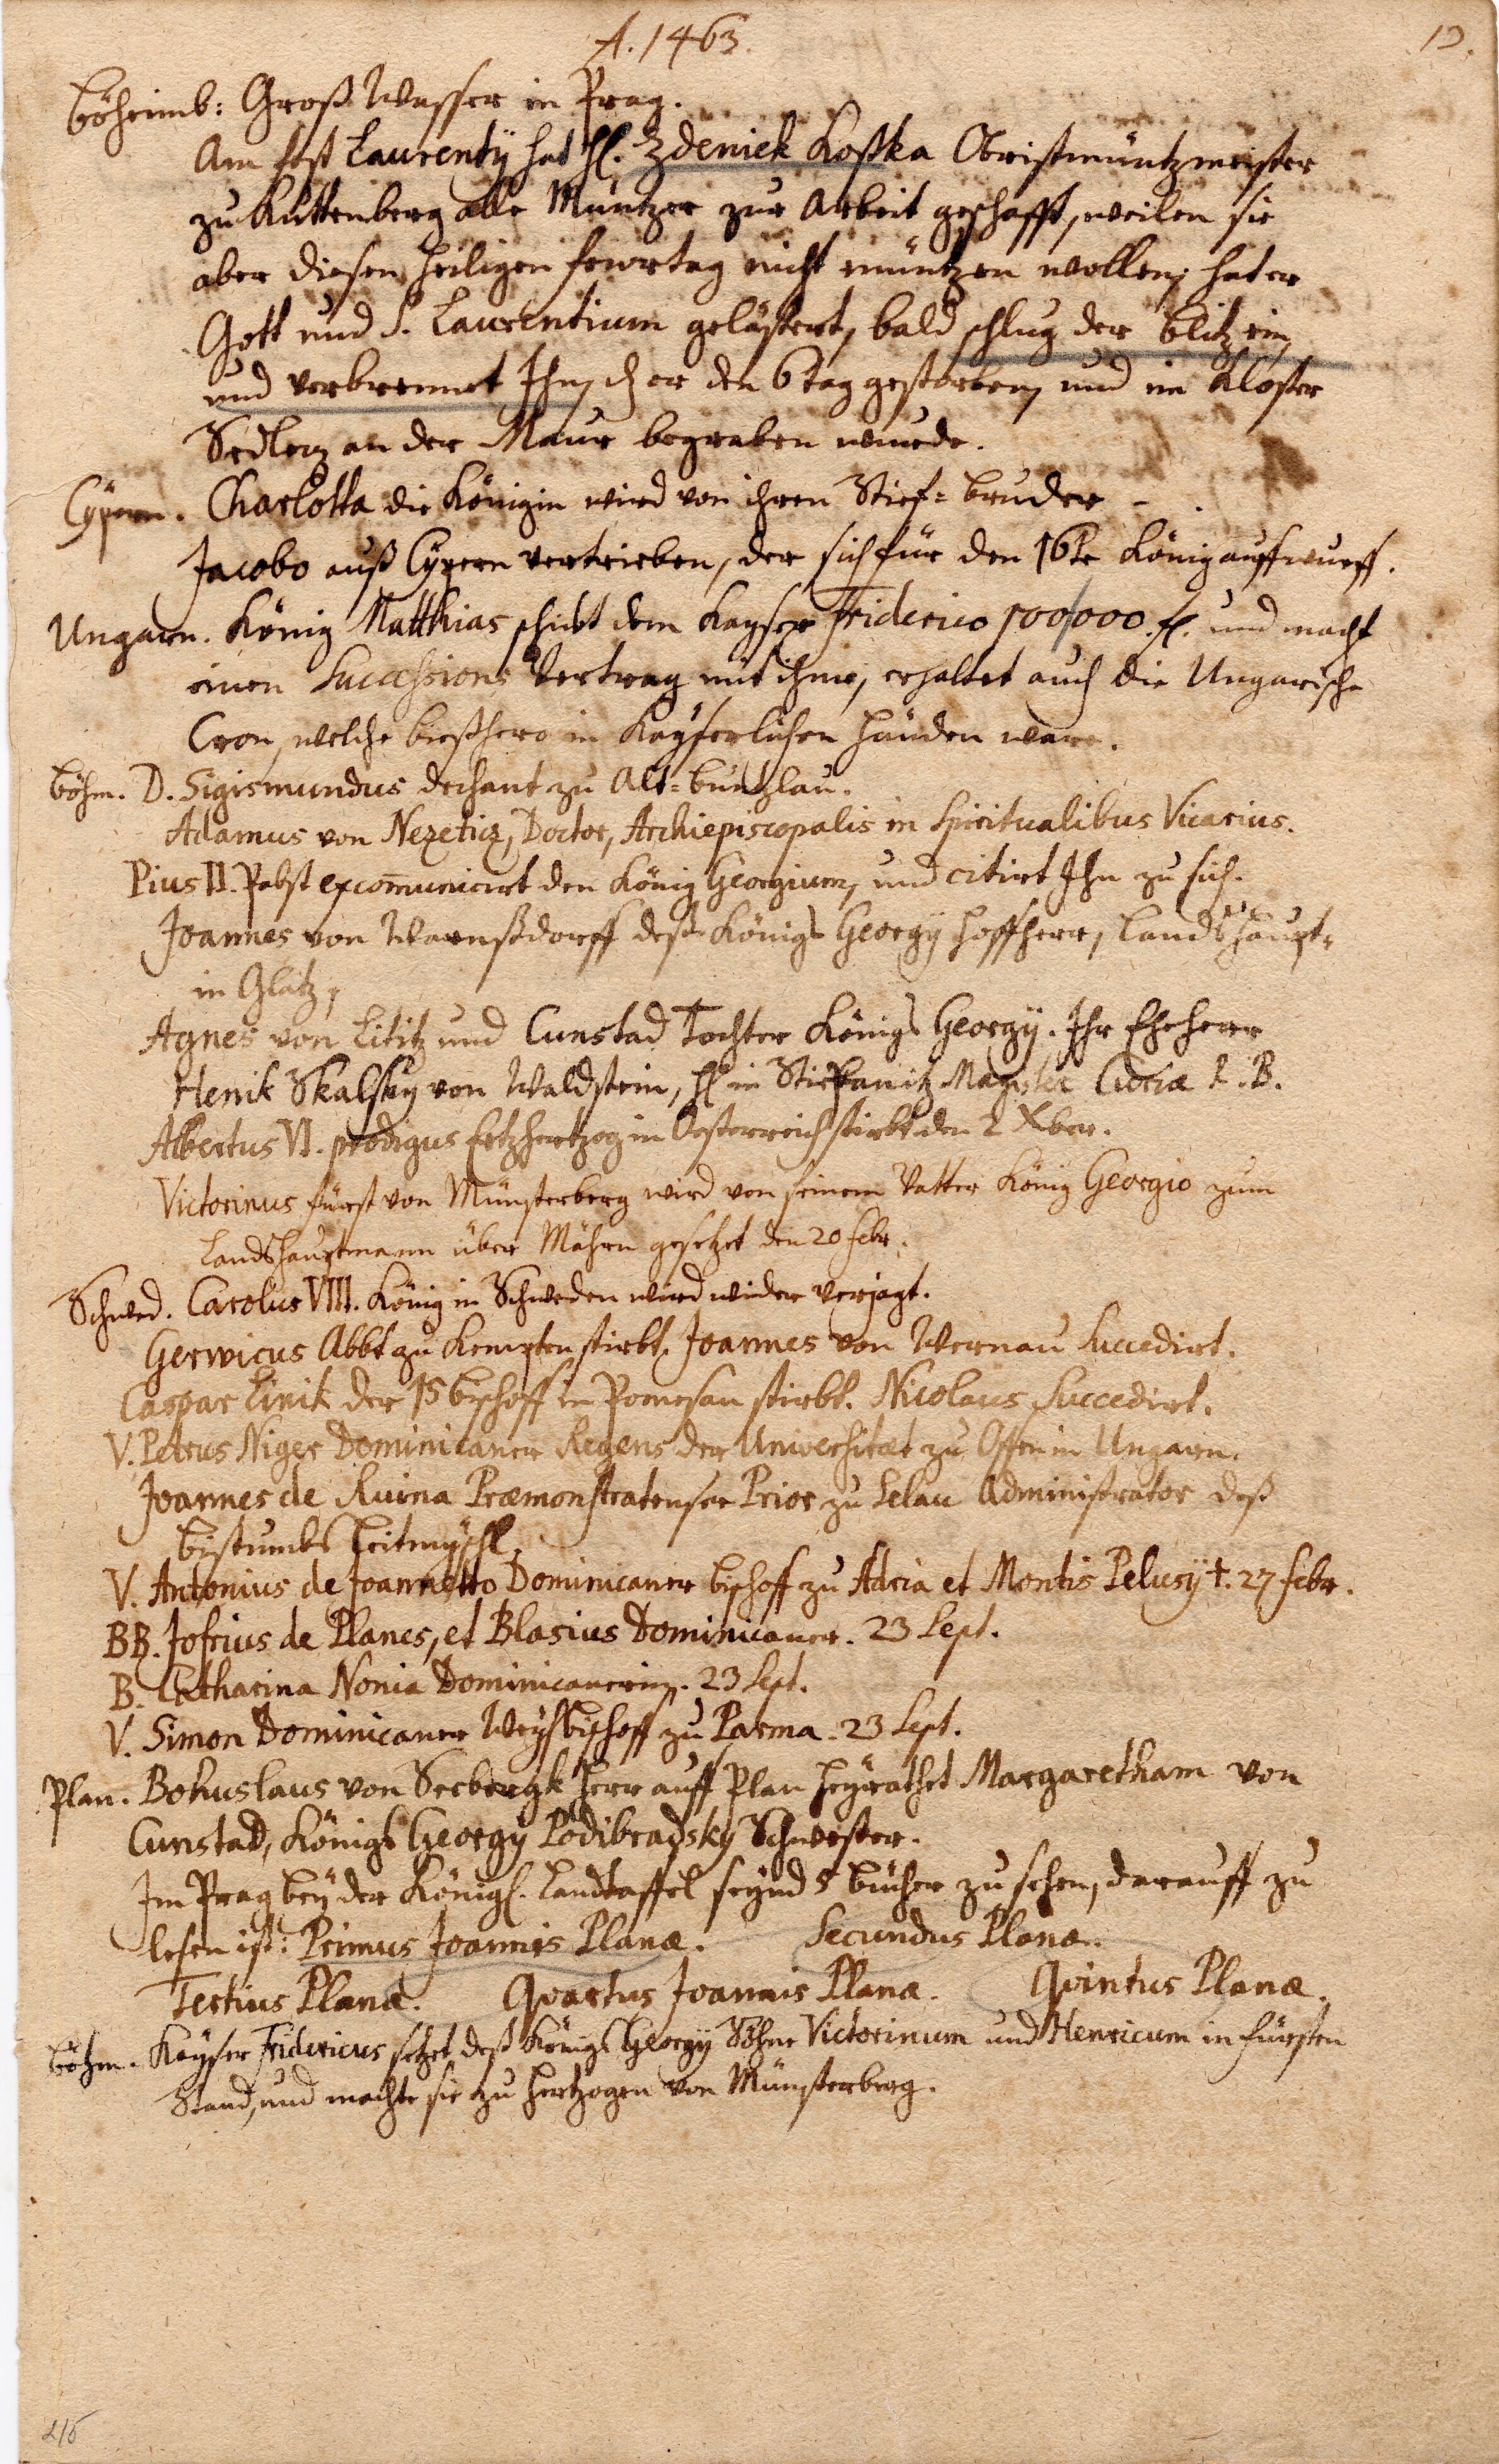 A. 1463.
13.
Böheimb: Groß Wasser in Prag.
Am fest Laurentÿ hat H. Zdeniek Kostka Obristmüntzmeister
zu Kuttenberg alle Müntzer zur Arbeit geschafft, weilen sie
aber diesen heiligen feyrtag nicht müntzen wollen, hat er
Gott und S. Laurentium gelästert, bald schlug der blitz ein,
und verbrennet Ihn, d er den 6 tag gestorben, und im Kloster
Sedletz an der Maur begraben wurde.
Cÿpern. Charlotta die Königin wird von ihren Stief-bruder
Jacobo auß Cÿpern vertrieben, der sich für den 16te König auffwurff.
Ungarn. König Matthias schickt dem Kayser Friderico 100/000 fl. und macht
einen Successions Vertrag mit ihme, erhaltet auch die Ungarische
Cron, welche bießhero in Kayserlichen händen ware.
Böhm. D. Sigismundus dechant zu Alt-buntzlau.
Adamus von Nezeticz, Doctor, Archiepiscopalis in Spiritualibus Vicarius.
Pius II. Pabst excomunicirt den König Georgium, und citirt Ihn zu sich.
Joannes von Warnßdorff deß Königs Georgÿ hoffherr, Landshaupt-
in Glatz,
Agnes von Lititz und Cunstad Tochter Königs Georgÿ. Ihr Eheherr
Henik Skalsky von Waldstein, H in Stiepanitz Magister Curiæ R. B.
Albertus VI. prodigus Ertzhertzog in Oesterreich stirbt den 2 Xber.
Victorinus fürst von Münsterberg wird von seinem Vatter König Georgio zum
Landshauptmann über Mähren gesetzet den 20 febr.
Schwed. Carolus VIII. König in Schweden wird wider verjagt.
Gerwicus Abbt zu Kempten stirbt. Joannes von Wernau succedirt.
Caspar Linik der 15 bischoff in Pomesan stirbt. Nicolaus succedirt.
V. Petrus Niger Dominicaner Regens der Universitæt zu Offen in Ungarn.
Joannes de Ruina Præmonstratenser Prior zu Selau Administrator deß
bistumbs Leitmyschl.
V. Antonius de Joannetto Dominicaner bischoff zu Adria et Montis Pelusÿ †. 27 febr.
BB. Jofrius de Planes, et Blasius Dominicaner. 23 Sept.
B. Catharina Nonia Dominicanerin. 23 Sept.
V. Simon Dominicaner Weyhbischoff zu Parma. 23 Sept.
Plan. Bohuslaus von Seebergk herr auff Plan heyrathet Margaretham von
Cunstad, Königs Georgÿ Podibradskÿ Schwester.
Im Prag beÿ der Königl. Landtaffel seynd 5 bücher zu sehen, darauff zu
lesen ist: Primus Joannis Planæ. Secundus Planæ.
Tertius Planæ. Quartus Joannis Planæ. Quintus Planæ.
Böhm. Kayser Fridericus setzet deß Königs Georgÿ Söhne Victorinum und Henricum in fürsten
Stand, und machte sie zu hertzogen von Münsterberg.
215